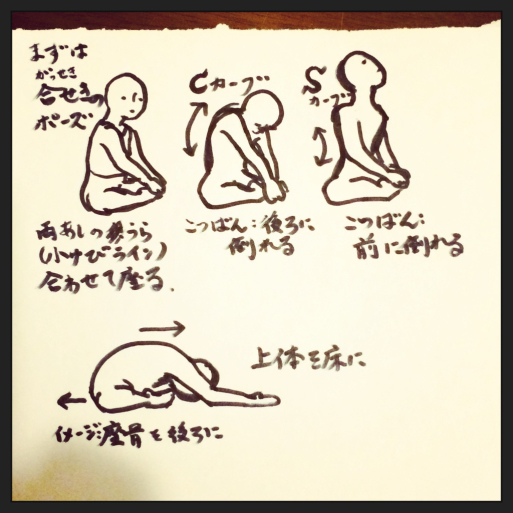 まずは
がっせき
合せきの
ポーズ
両あしの裏うら
(小ゆびライン)
合わせて座る.
Cカーブ
こつばん:後ろに
倒れる
S
カーブ
こつばん:
前に倒れる
上体を床に
イメージ:座骨を後ろに